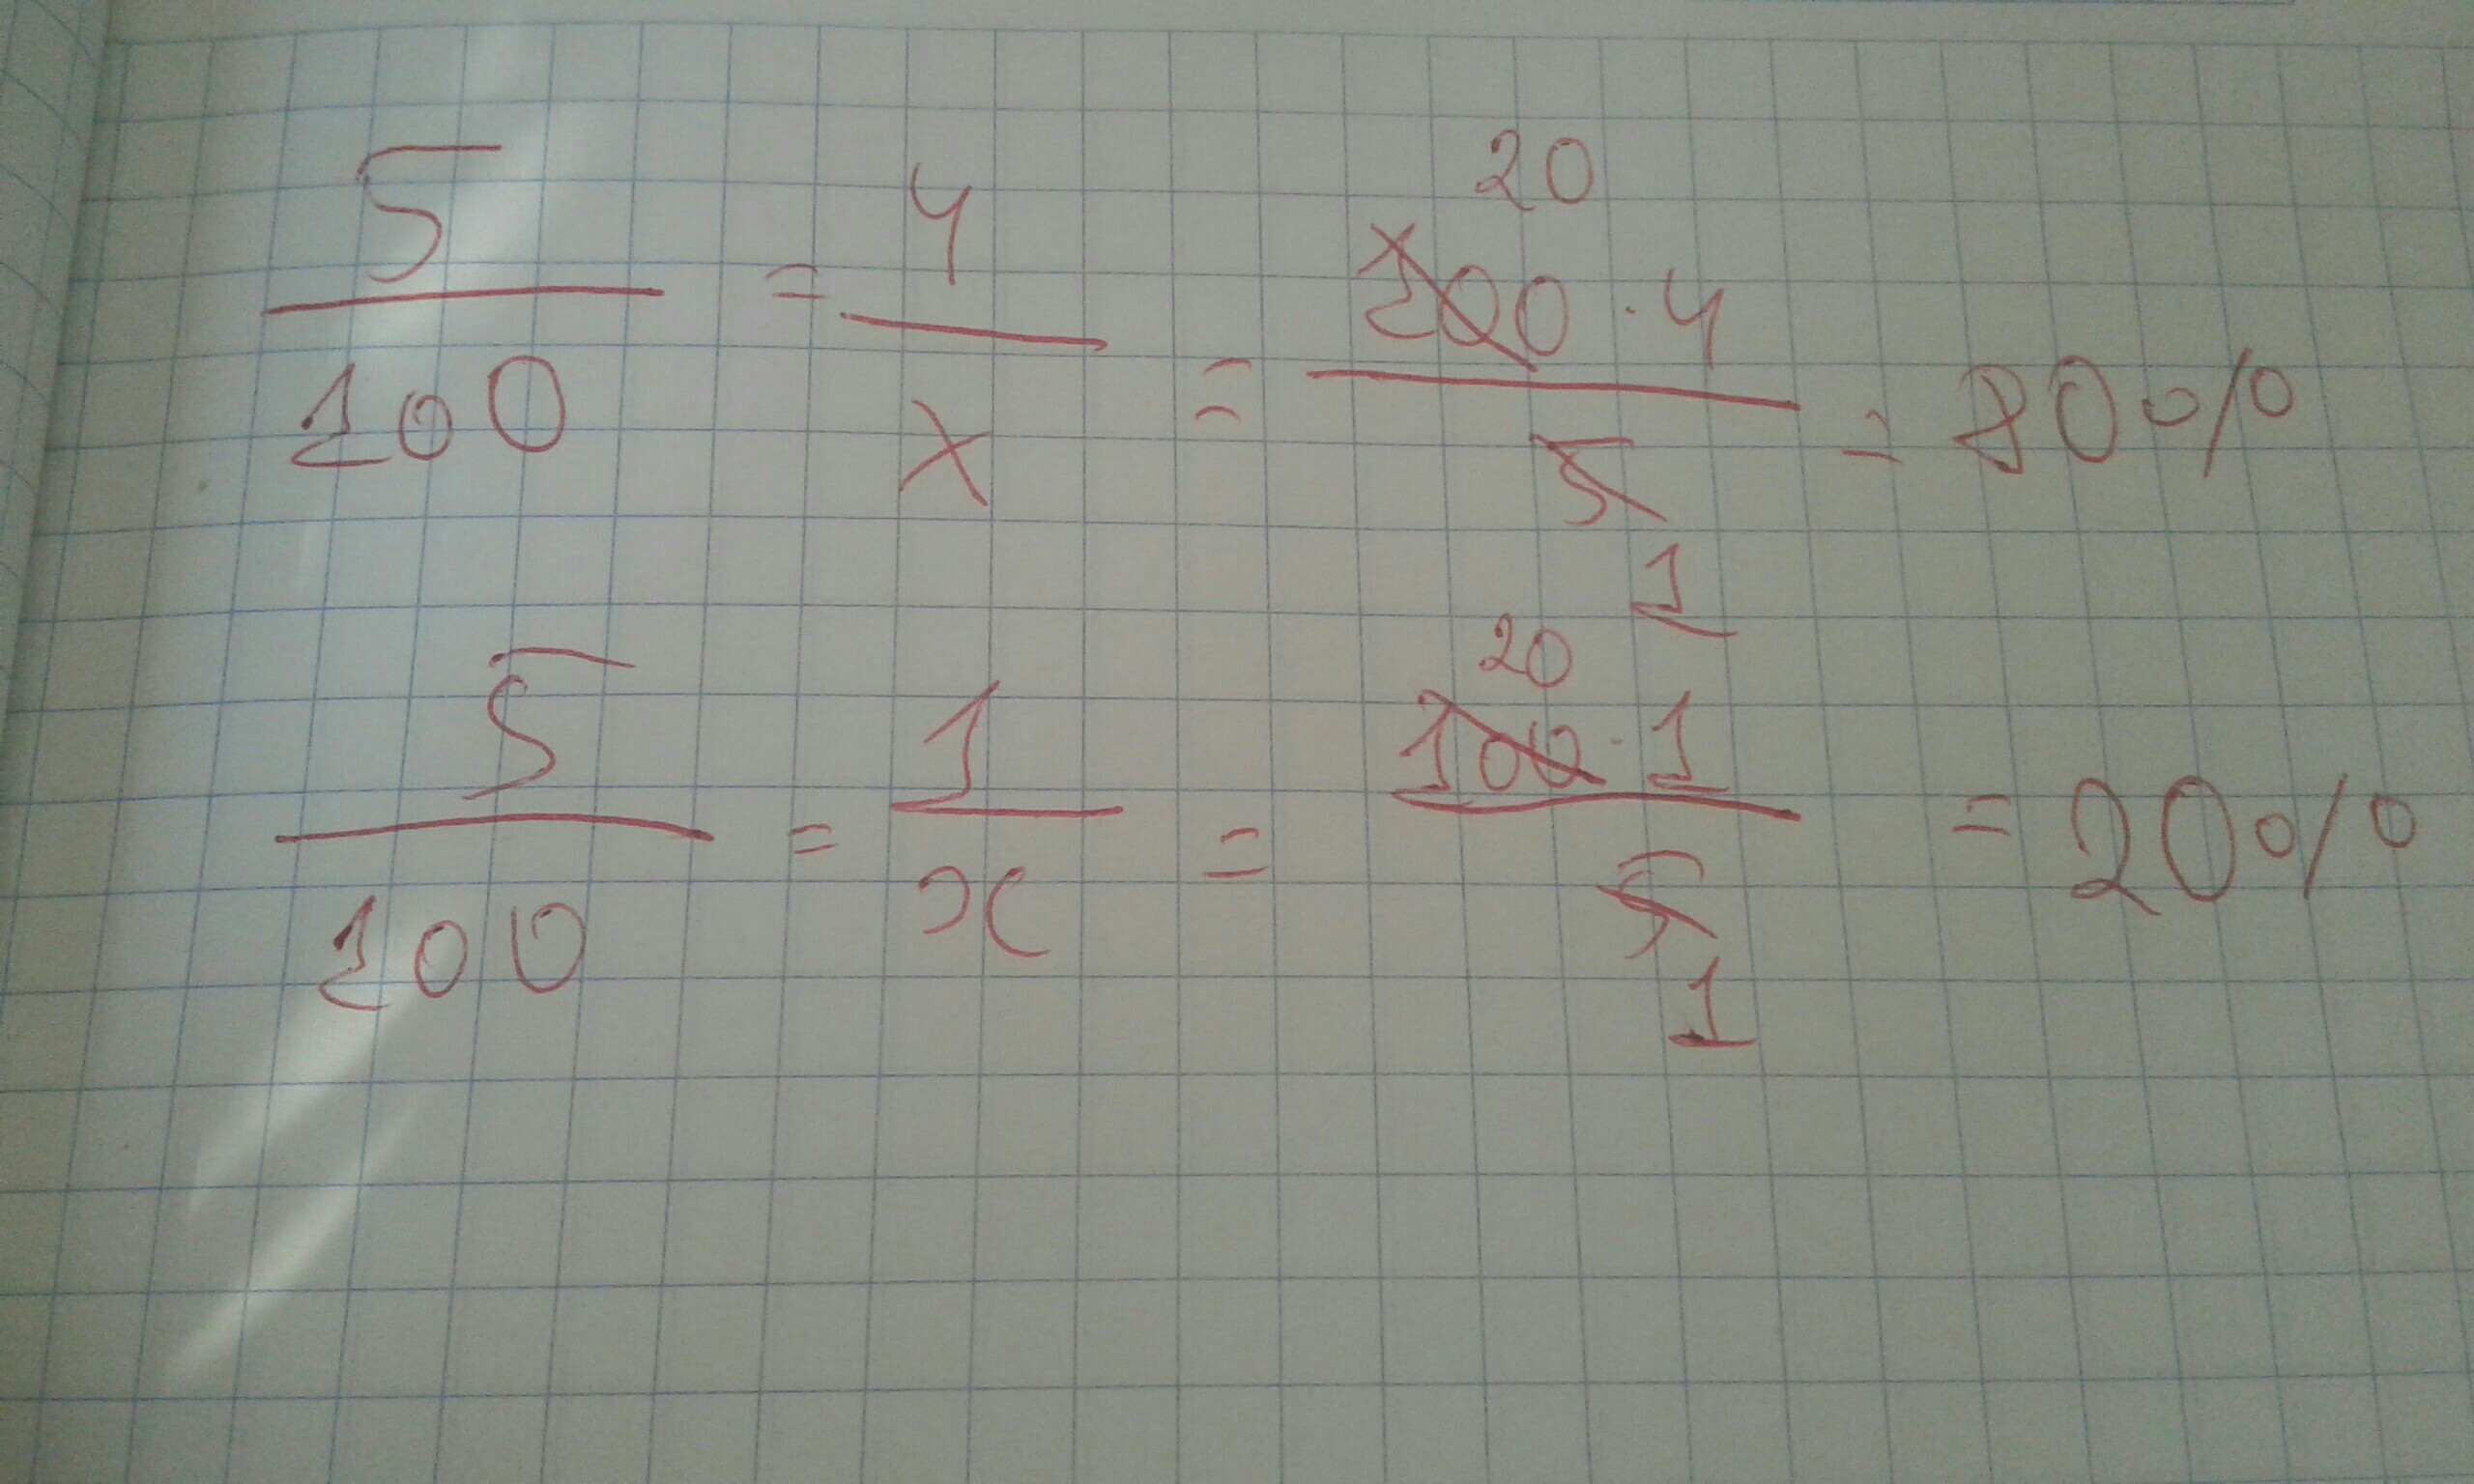 5/100 = 4/x = 20 100·4/5 1 = 80%
5/100 = 1/x = 20 100·1/5 1 = 20%